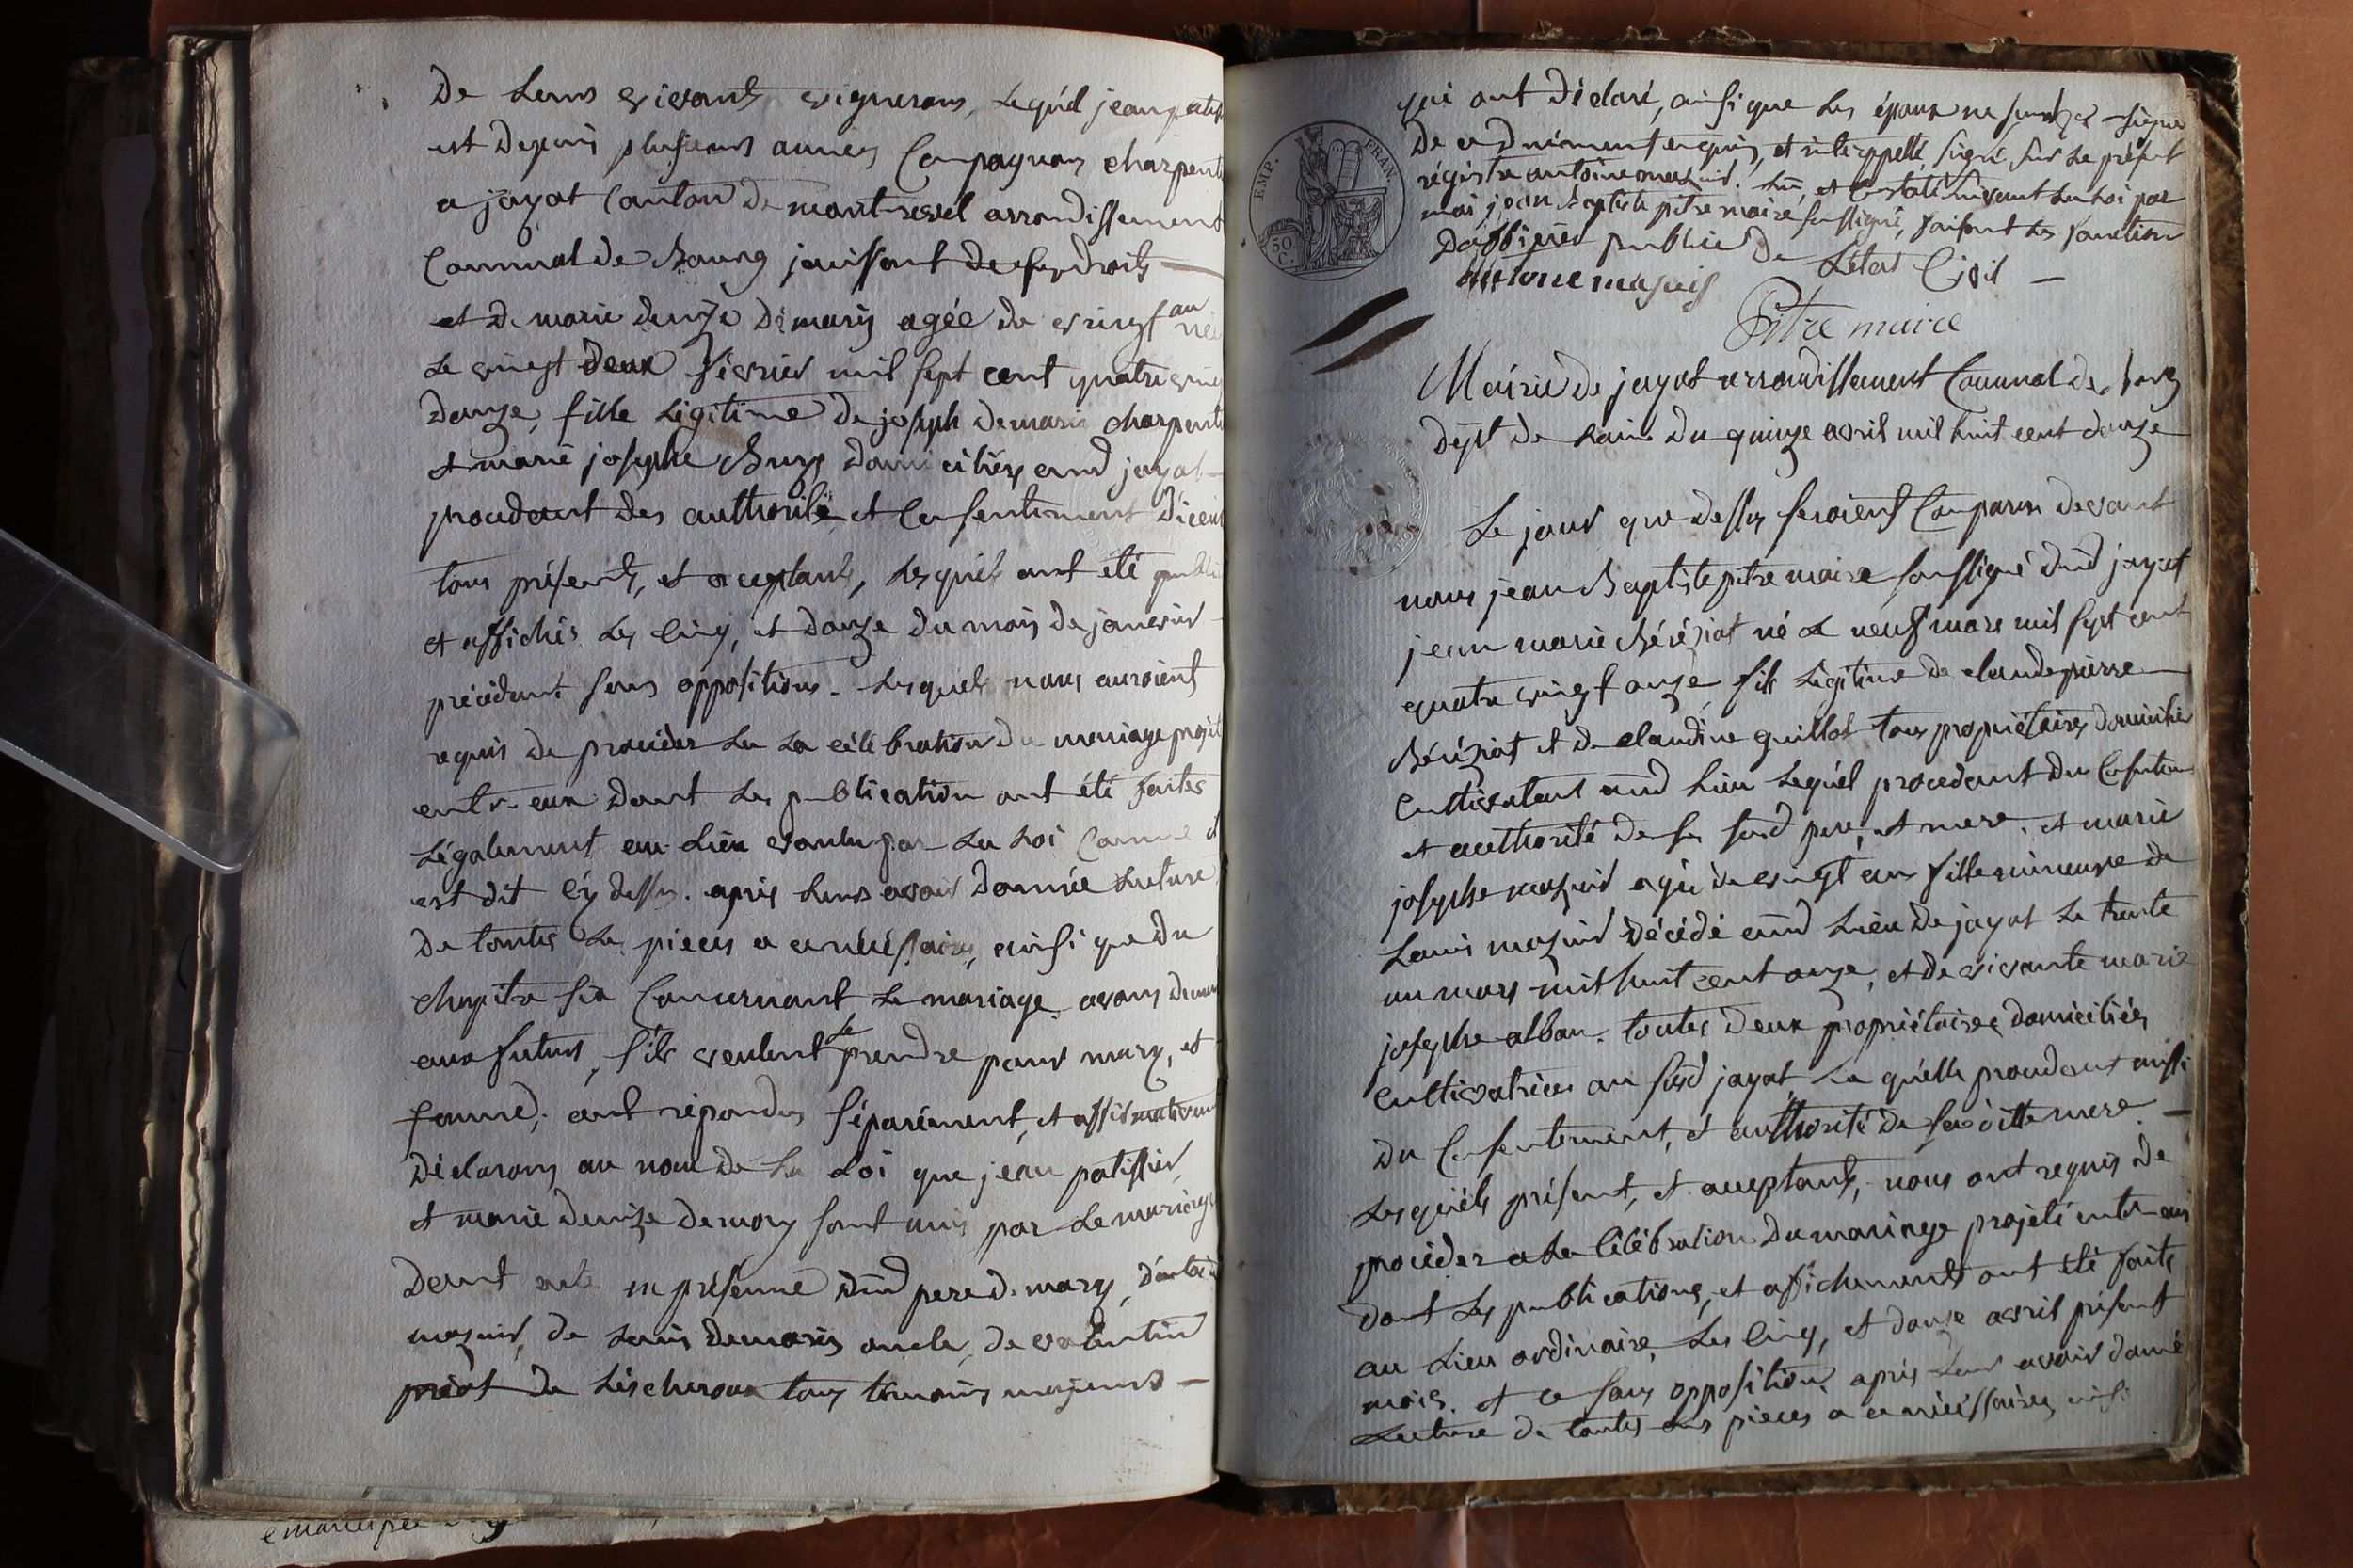 de Leurs vivants vignerons, Lequel jean patis
est depuis plusieurs années Compagnon charpent
a jayat Canton de montrevel arrondissement
Communal de Bourg jouissant de ses droits
et de marie denize demaris agée de vingt an née
Le vingt deux fevrier mil sept cent quatre ving
douze, fille Légitime de joseph demaris charpent
et marie josephe Buys domiciliés aud jayat
procedant des authorité et Consentement d'iceux
tous présents, et acceptants, Lesquels ont été publi
et affichés Les cinq, et douze du mois de janvier
précédant sans oppositions. Lesquels nous auroient
requis de procéder a La célébration du mariage projet
entr eux dont Les publication ont été faites
Légalement au Lieu voulu par La Loi Comme il
est dit cy dessus. après Leurs avoir donnée Lecture
de toutes Les pieces a ce nécéssaires, ainsi que du
chapitre six Concernant Le mariage avons deman
aux futurs, s'ils veulent se prendre pour mary, et
femme, ont répondus séparément, et affirmativem
déclarons au nom de La Loi que jean patissier
et marie denize demary sont unis par Le mariage
dont acte en présence dud pere demary, d'antoine
mazuir, de Louis demaris oncle, de valentin
préot de Léscheroux tous témoins majeurs
qui ont déclaré, ainsi que Les époux ne savoir signer
de ce duement enquis, et interppellé, signé sur Le présent
régistre antoine mazuir. Lu, et Constaté suivant La Loi par
moi jean Baptiste pitre maire soussigné, faisant Les fonction
d'officier public de L'état Civil
antoine masuis
Pitre maire
EMP. FRAN.
50 C.
Mairie de jayat arrondissement Communal de Bourg
dépt de Lain du quinze avril mil huit cent douze
Le jour que dessus seroient Comparus devant
nous jean Baptiste pitre maire soussigné dud jayat
jean marie Béréziat né Le neuf mars mil sept cent
quatre vingt onze, fils Légitime de claude pierre
Béréziat et de claudine guillot tous propriétaires domicilié
Cultivateurs aud Lieu Lequel procedant du Consentem
et authorité de ses susd pere, et mere. et marie
josephe mazuir agée de vingt ans fille mineure de
Louis mazuir décédé aud Lieu de jayat Le trente
un mars mil huit cent onze, et de vivante marie
josephe alban. toutes deux propriétaires domiciliées
Cultivatrices au susd jayat La quelle procedant aussi
du Consentement, et authorité de sa ditte mere.
Lesquels présent, et acceptants, nous ont requis de
procéder a La Célébration du mariage projeté entr eux
dont Les publications, et affichements ont été faits
au Lieu ordinaire, Les cinq, et douze avril présent
mois. et ce sans opposition. après Leur avoir donné
Lecture de toutes Les pieces a ce nécéssaires, ainsi